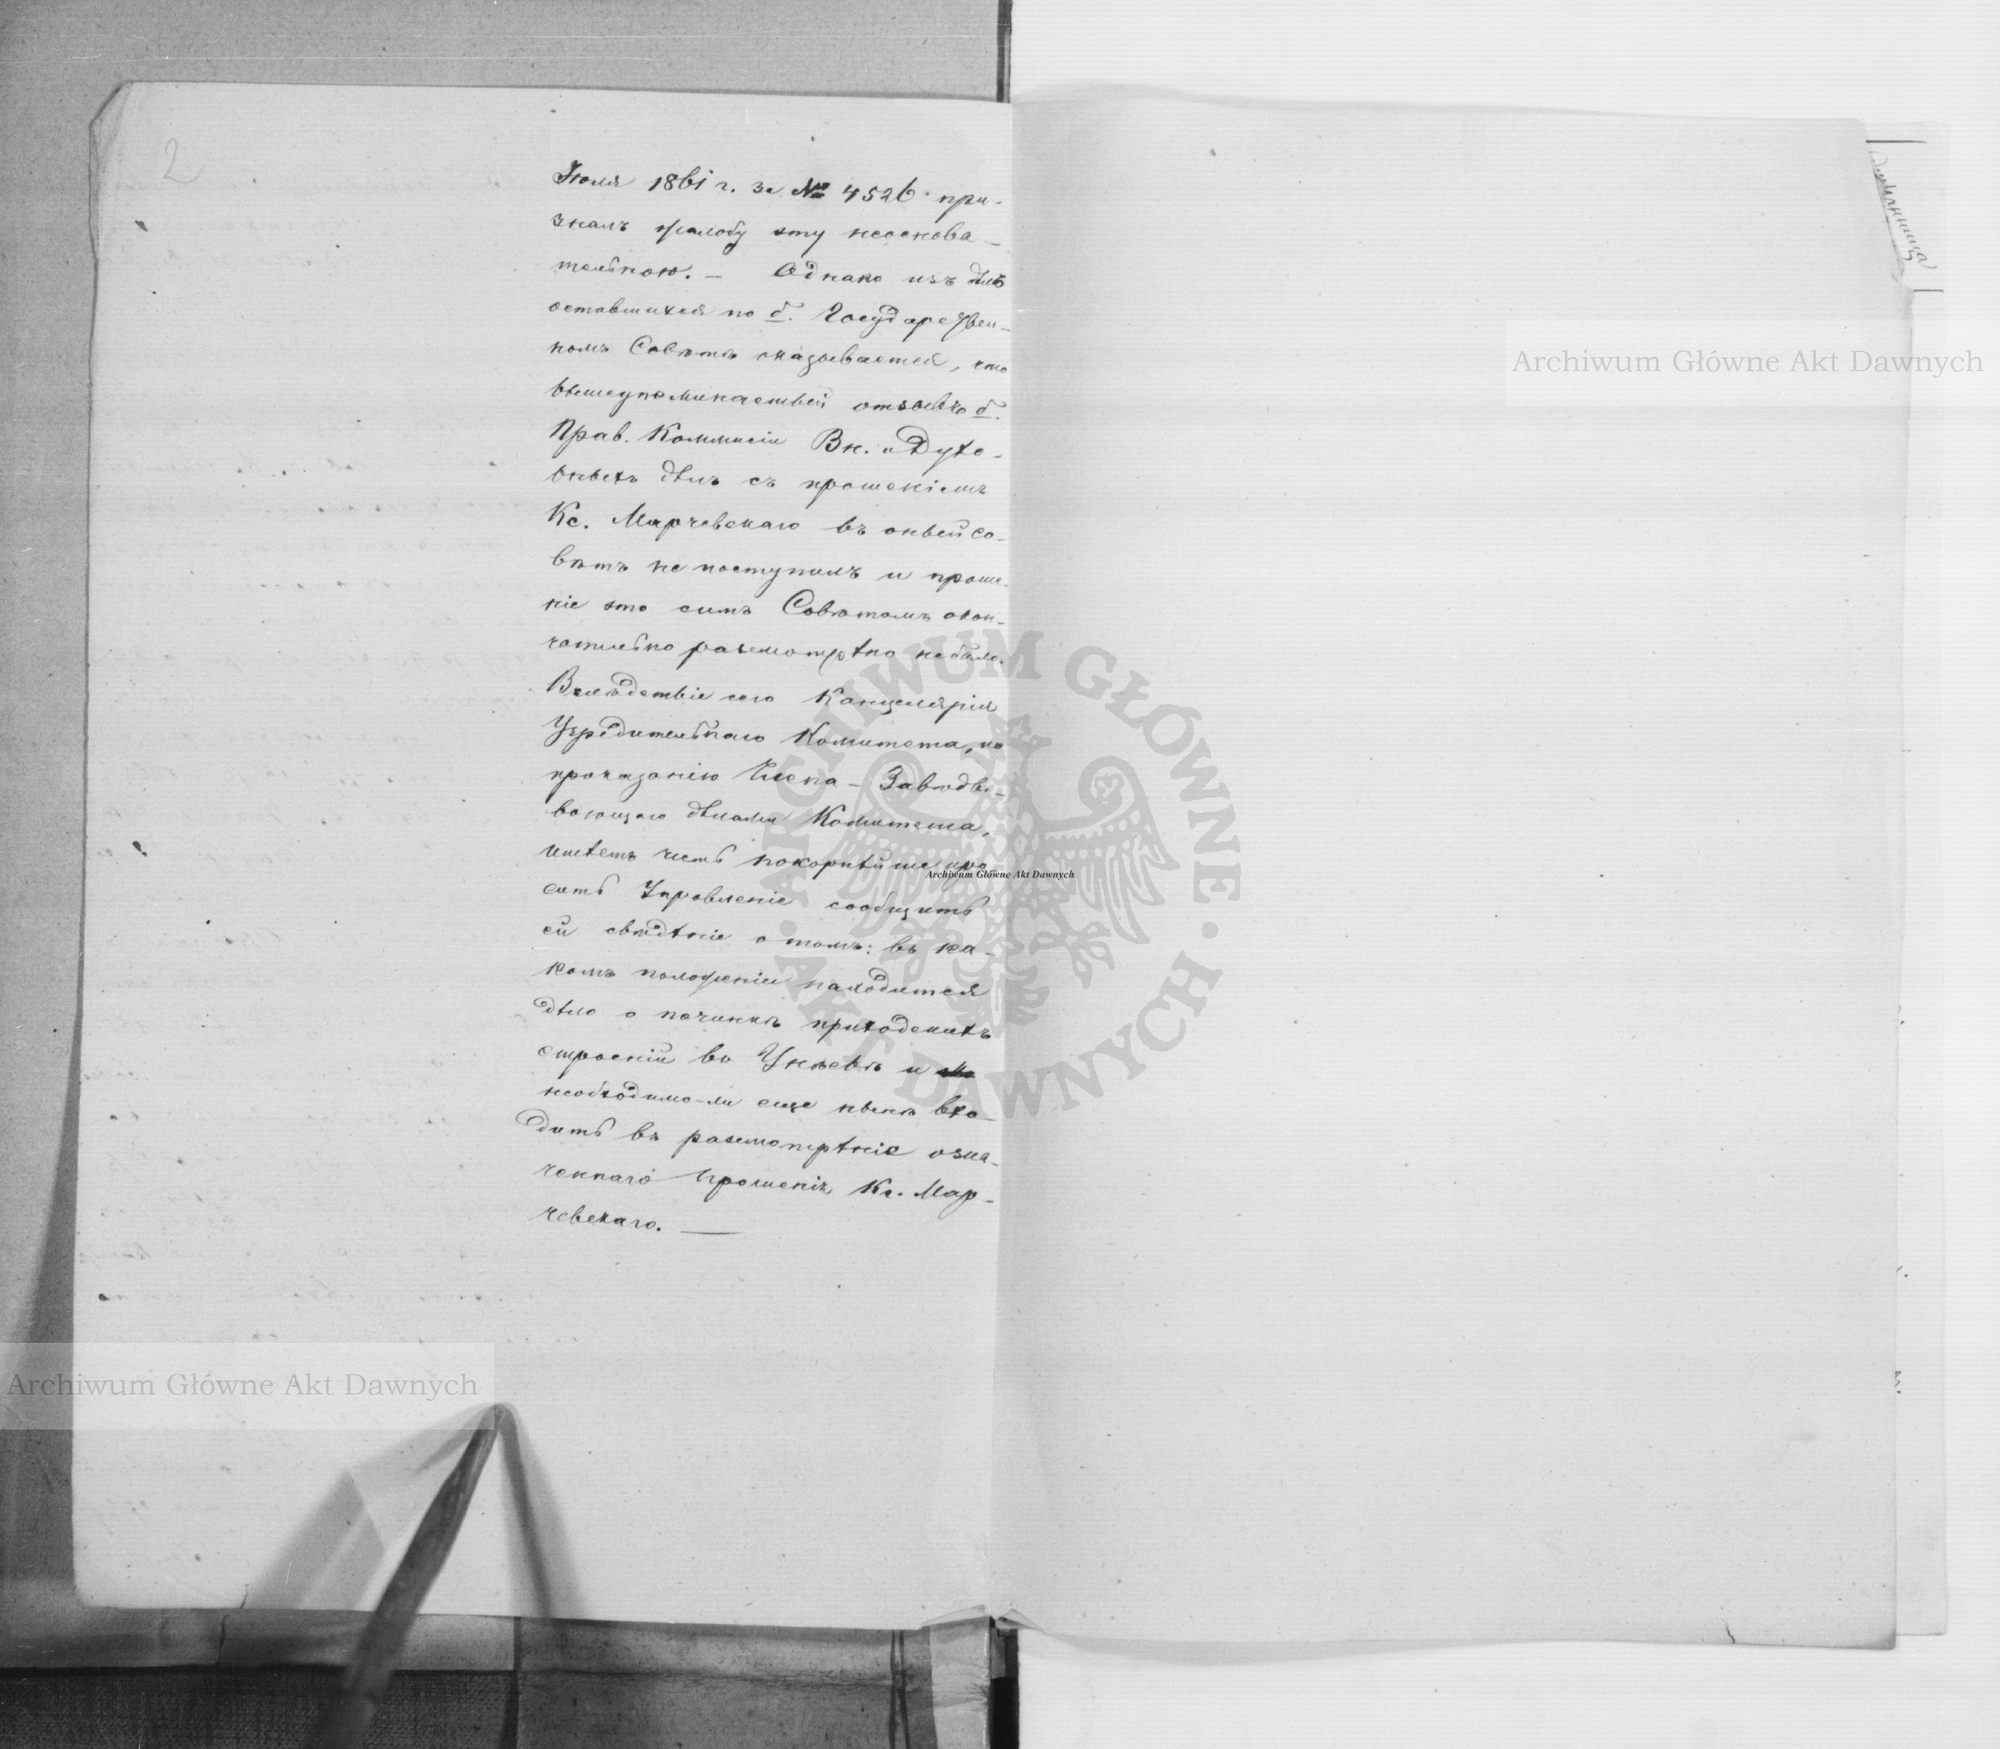 2
Іюля 1861 г. за № 4526 при-
зналъ жалобу эту неоснова-
тельною. — Однако изъ дѣлъ
оставшихся по б. Государствен-
номъ Совѣтѣ оказывается, что
вышеупоминаемый отзывъ б.
Прав. Коммисіи Вн. и Духо-
вныхъ дѣлъ съ прошеніемъ
Кс. Марчевскаго въ оный Со-
вѣтъ не поступилъ и проше-
ніе это симъ Совѣтомъ окон-
чательно разсмотрѣно не было.
Вслѣдствіе сего Канцелярія
Учредительнаго Комитета, по
приказанію Члена-Завѣды-
вающаго дѣлами Комитета,
имѣетъ честь покорнѣйше про
сить Управленіе сообщить
ей свѣдѣніе о томъ: въ ка-
комъ положеніи находится
дѣло о починкѣ приходскихъ
строеній въ Унѣевѣ и
необходимо-ли еще нынѣ вхо-
дить въ разсмотрѣніе озна-
ченнаго прошенія Кс. Мар-
чевскаго. —
Archiwum Główne Akt Dawnych
Archiwum Główne Akt Dawnych
Archiwum Główne Akt Dawnych
ARCHIWUM GŁÓWNE
AKT DAWNYCH